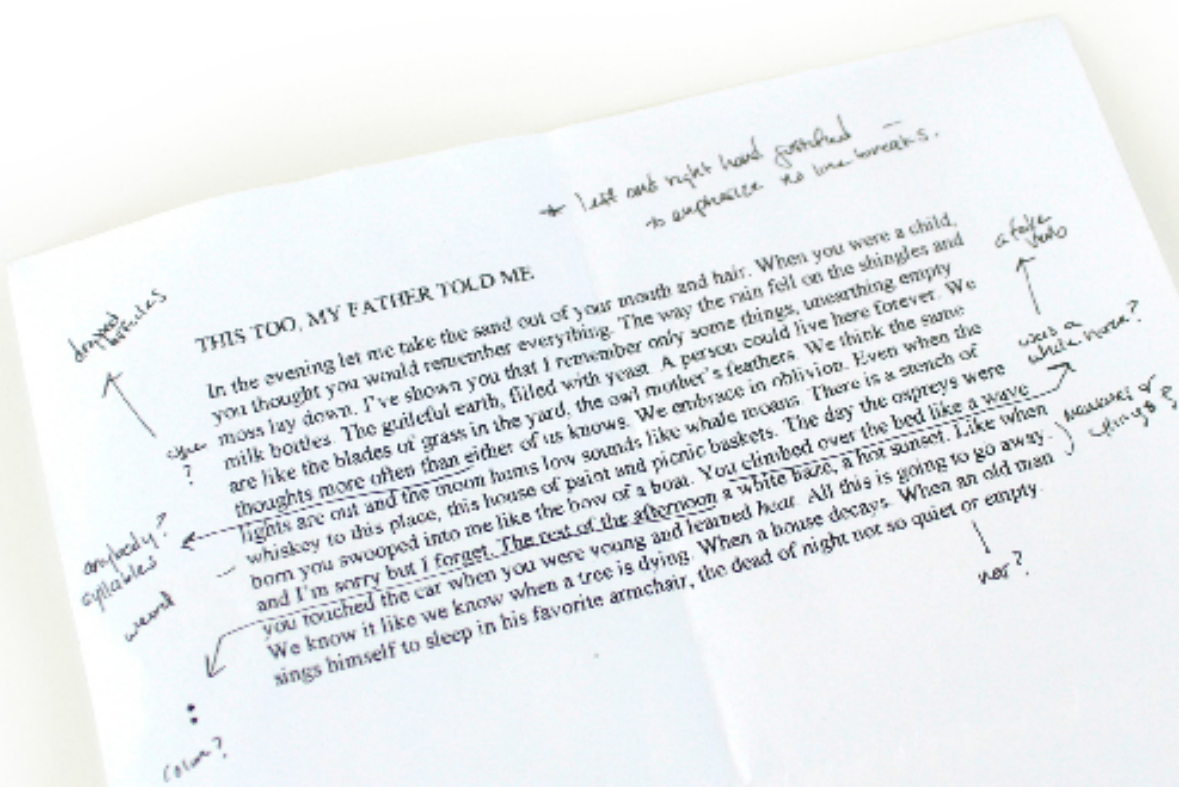 left and right hand justified
to emphasize no line breaks.
THIS TOO, MY FATHER TOLD ME
In the evening let me take the sand out of your mouth and hair. When you were a child,
you thought you would remember everything. The way the rain fell on the shingles and
moss lay down. I've shown you that I remember only some things, unearthing empty
milk bottles. The guileful earth, filled with yeast. A person could live here forever. We
are like the blades of grass in the yard, the owl mother's feathers. We think the same
thoughts more often than either of us knows. We embrace in oblivion. Even when the
lights are out and the moon hums low sounds like whale moans. There is a stench of
whiskey to this place, this house of paint and picnic baskets. The day the ospreys were
born you swooped into me like the bow of a boat. You climbed over the bed like a wave
and I'm sorry but I forget. The rest of the afternoon a white haze, a hot sunset. Like when
you touched the car when you were young and learned heat. All this is going to go away.
We know it like we know when a tree is dying. When a house decays. When an old man
sings himself to sleep in his favorite armchair, the dead of night not so quiet or empty.
dropped
?
anybody?
syllables
weird
:
colon?
was a
white haze?
nor?